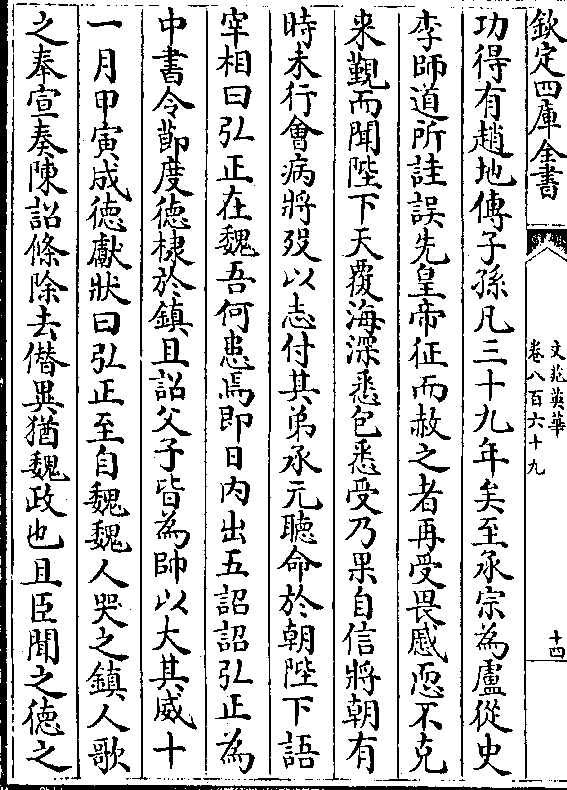 欽定四庫全書
文苑英華
卷八百六十九
十四
功得有趙地傳子孫凡三十九年矣至承宗為盧從史
李師道所詿誤先皇帝征而赦之者再受畏慼恧不克
来覲而聞陛下天覆海深悉包悉受乃果自信將朝有
時未行㑹病將殁以志付其弟承元聽命於朝陛下語
宰相曰弘正在魏吾何患焉即日内出五詔詔弘正為
中書令節度徳棣於鎮且詔父子皆為帥以大其威十
一月甲寅成徳獻狀曰弘正至自魏魏人哭之鎮人歌
之奉宣奏陳詔條除去僭異猶魏政也且臣聞之徳之